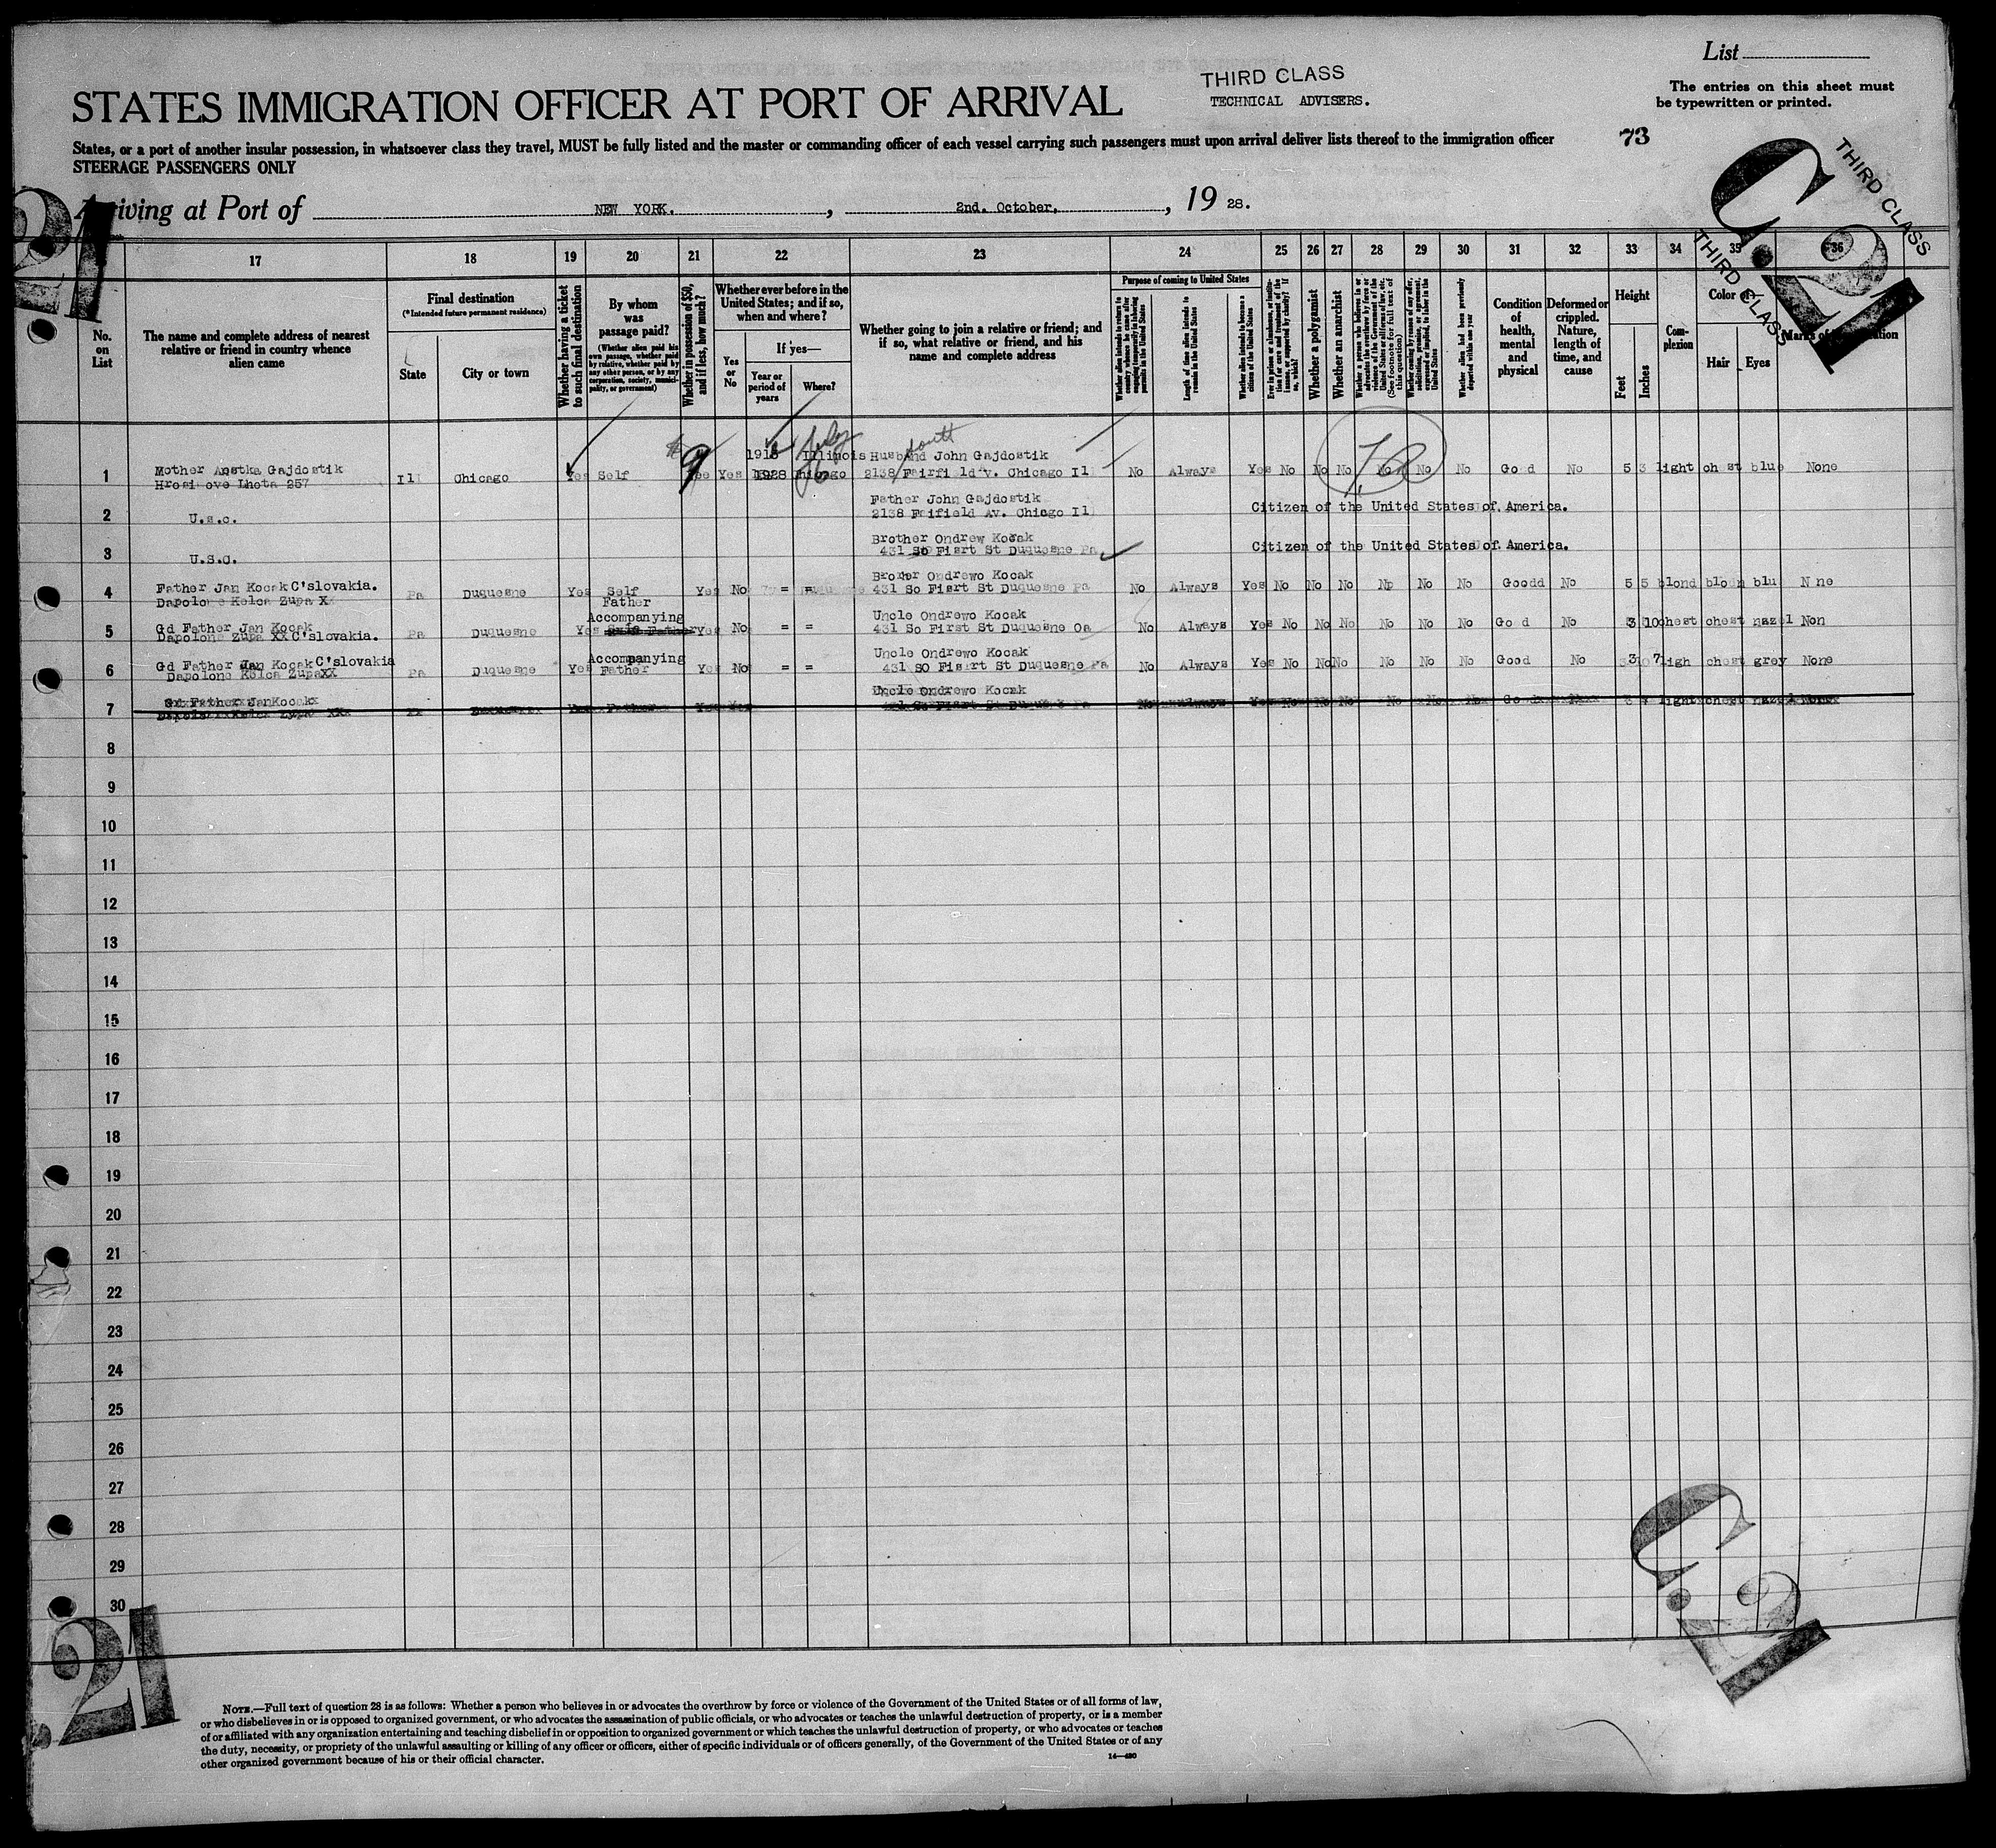 List
THIRD CLASS
TECHNICAL ADVISERS.
The entries on this sheet must
be typewritten or printed.
STATES IMMIGRATION OFFICER AT PORT OF ARRIVAL
73
States, or a port of another insular possession, in whatsoever class they travel, MUST be fully listed and the master or commanding officer of each vessel carrying such passengers must upon arrival deliver lists thereof to the immigration officer
STEERAGE PASSENGERS ONLY
C.21
THIRD CLASS
THIRD CLASS
21
Arriving at Port of NEW YORK. , 2nd. October, , 19 28.
17 18 19 20 21 22 23 24 25 26 27 28 29 30 31 32 33 34 35 36
No. on List
The name and complete address of nearest relative or friend in country whence alien came
Final destination
(*Intended future permanent residence)
State
City or town
Whether having a ticket to such final destination
By whom was passage paid?
(Whether alien paid his own passage, whether paid by relative, whether paid by any other person, or by any corporation, society, municipality, or government)
Whether in possession of $50, and if less, how much?
Whether ever before in the United States; and if so, when and where?
Yes or No
If yes—
Year or period of years
Where?
Whether going to join a relative or friend; and if so, what relative or friend, and his name and complete address
Purpose of coming to United States
Length of time alien intends to remain in the United States
Whether alien intends to become a citizen of the United States
Whether a polygamist
Whether an anarchist
(See footnote for full text of this question)
Whether alien had been previously deported within one year
Condition of health, mental and physical
Deformed or crippled. Nature, length of time, and cause
Height
Feet
Inches
Complexion
Color of—
Hair
Eyes
1 Mother Anetka Gajdostik Ill Chicago Yes Self Yes Yes 1928 Illinois Husband John Gajdostik No Always Yes No No No No No Good No 5 3 light chest blue None
2138 Fairfield v. Chicago Il
2 U.s.c. Father John Gajdostik
2138 Feifield Av. Chicago Il Citizen of the United States of America.
3 U.S.C. Brother Ondrew Kocak
431 So Fisrt St Duquesne Pa Citizen of the United States of America.
4 Father Jan Kocak C'slovakia. Pa Duquesne Yes Self Yes No = = Ondrewo Kocak No Always Yes No No No No No No Goodd No 5 5 blond blu
431 So Fisrt St Duquesne Pa
5 Gd Father Jan Kocak Pa Duquesne Yes Father Accompanying Yes No = = Uncle Ondrewo Kocak No Always Yes No No No No No No Good No 3 10 chest chest hazel Non
Dapolone Zupa XX C'slovakia. 431 So First St Duquesne Oa
6 Gd Father Jan Kocak C'slovakia Pa Duquesne Yes Accompanying Father Yes No = = Uncle Ondrewo Kocak No Always Yes No No No No No No Good No 3 7 ligh chest grey None
Dapolone Kelca ZupaXX 431 SO Fisrt St Duquesne Pa
7 Gd Father Jan Kocak Uncle Ondrewo Kocak
8
9
10
11
12
13
14
15
16
17
18
19
20
21
22
23
24
25
26
27
28
29
30
C.21
21
NOTE.—Full text of question 28 is as follows: Whether a person who believes in or advocates the overthrow by force or violence of the Government of the United States or of all forms of law,
or who disbelieves in or is opposed to organized government, or who advocates the assassination of public officials, or who advocates or teaches the unlawful destruction of property, or is a member
of or affiliated with any organization entertaining and teaching disbelief in or opposition to organized government or which teaches the unlawful destruction of property, or who advocates or teaches
the duty, necessity, or propriety of the unlawful assaulting or killing of any officer or officers, either of specific individuals or of officers generally, of the Government of the United States or of any
other organized government because of his or their official character.
14—480